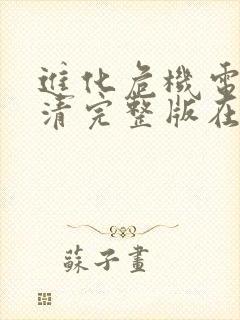 進化危機電
清完整版在
蘇子畫